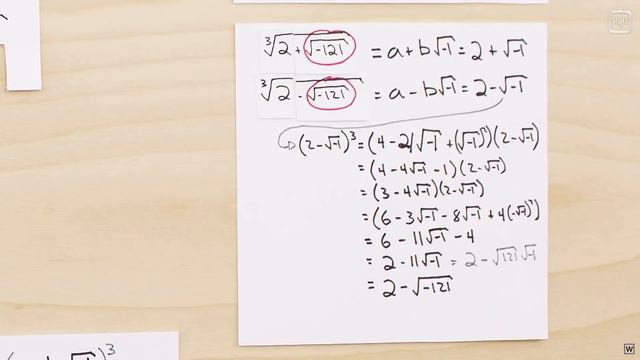 ∛(2 + √-121) = a + b√-1 = 2 + √-1
∛(2 - √-121) = a - b√-1 = 2 - √-1
(2 - √-1)³ = (4 - 2√-1 + (√-1)²)(2 - √-1)
= (4 - 4√-1 - 1)(2 - √-1)
= (3 - 4√-1)(2 - √-1)
= (6 - 3√-1 - 8√-1 + 4(-√-1)²)
= 6 - 11√-1 - 4
= 2 - 11√-1 = 2 - √121 √-1
= 2 - √-121
√-1)³
W